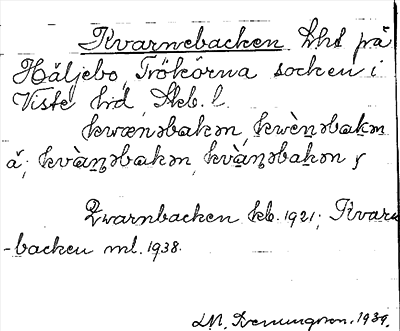 Kvarnebacken, lht på
Häljebo, Trökörna socken i
Viste hd, Skb. l.
kwænəbakən, kwènəbakən
å; kvàṇəbakən, kvàṇəbakən
Qvarnbacken kb. 1921; Kvarn
-backen ml. 1938.
1939.